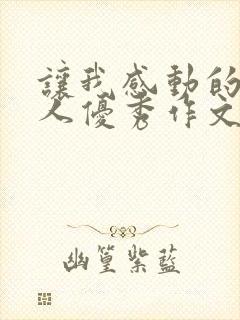 讓我感動的
人優秀作文
幽篁紫藍